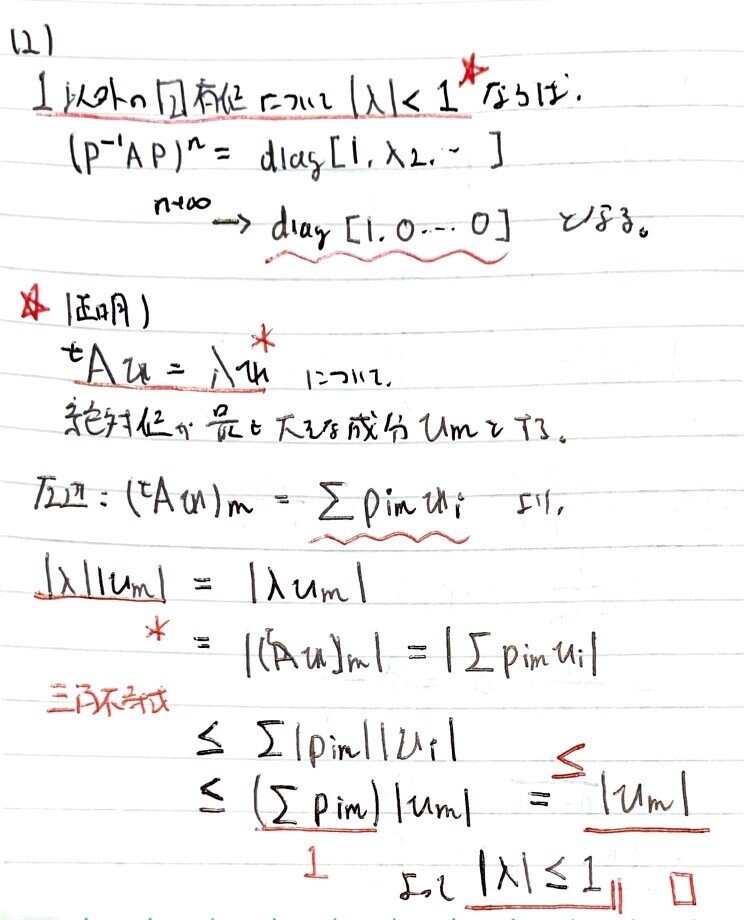 (2)
1以外の固有値について |λ| < 1 ☆ ならば.
(P⁻¹AP)ⁿ = diag [1, λ2, … ]
n→∞ → diag [1, 0 … 0] となる。
☆ 証明)
ᵗAu = λu * について.
絶対値が最も大きな成分 um とする。
左辺 : (ᵗAu)m = Σ pim ui より,
|λ||um| = |λum|
* = |(ᵗAu)m| = |Σ pim ui|
三角不等式
≤ Σ|pim||ui| ≤
≤ (Σ pim)|um| = |um|
1 よって |λ| ≤ 1 □